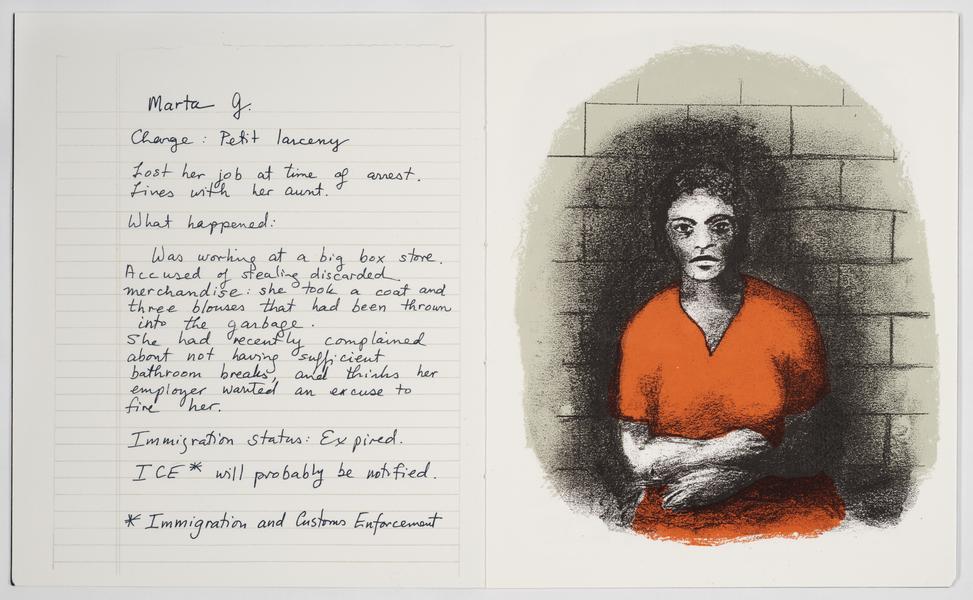 Marta G.
Charge : Petit larceny
Lost her job at time of arrest.
Lives with her aunt.
What happened:
Was working at a big box store.
Accused of stealing discarded
merchandise: she took a coat and
three blouses that had been thrown
into the garbage.
She had recently complained
about not having sufficient
bathroom breaks, and thinks her
employer wanted an excuse to
fire her.
Immigration status: Expired.
ICE* will probably be notified.
* Immigration and Customs Enforcement